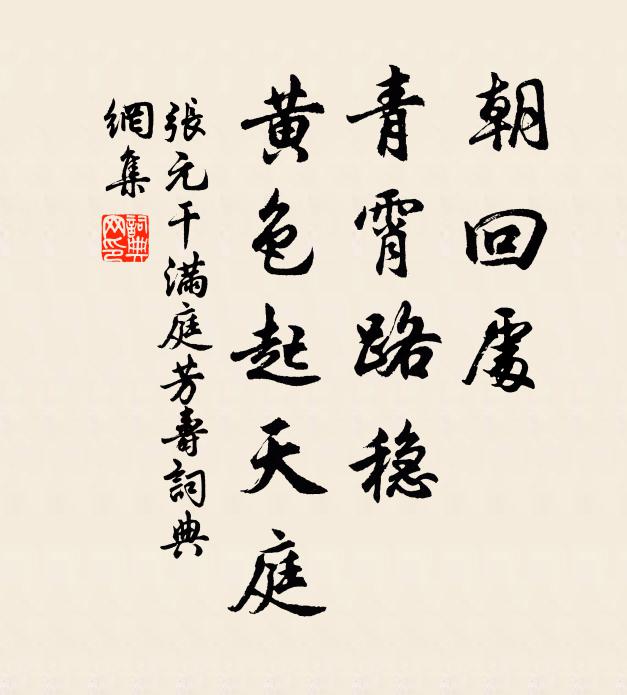 朝回處
青霄路穩
黃色起天庭
張元干滿庭芳壽詞典
網集
詞典
网印